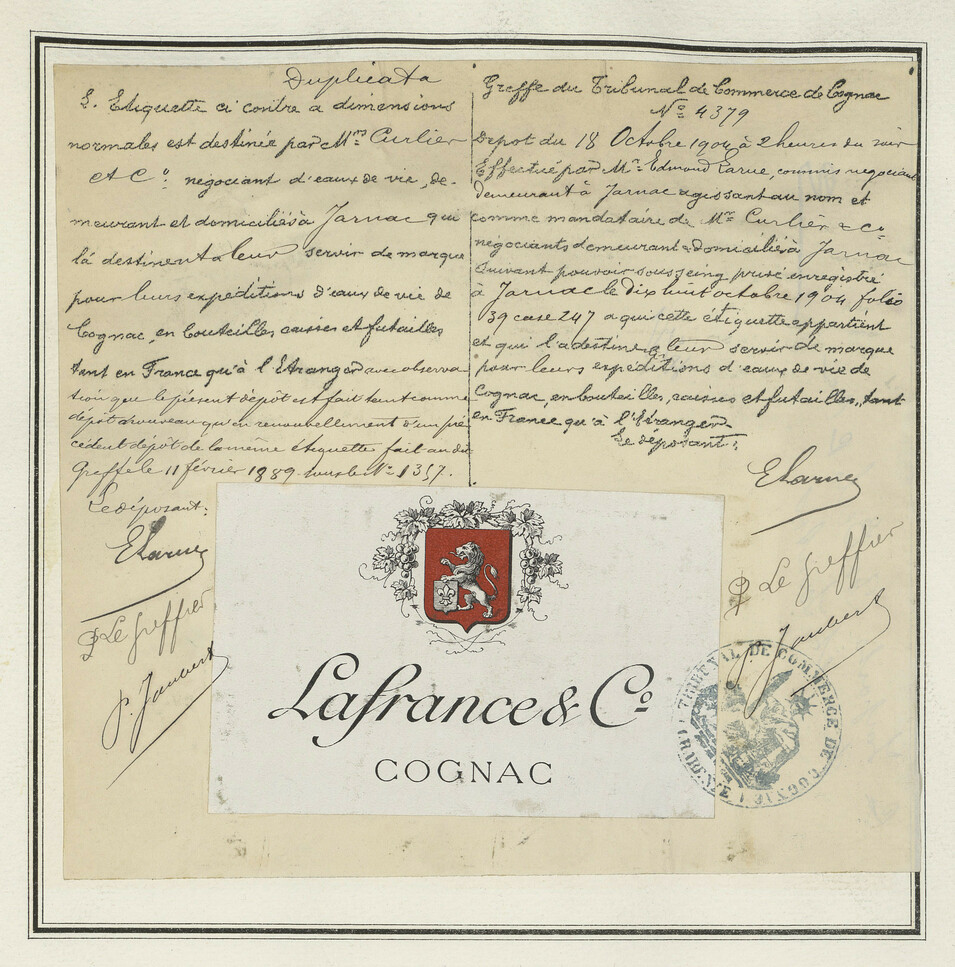 Duplicata
L. Etiquette ci contre a dimensions
normales est destinée par Mrs Curlier
et Co. négociant d'eaux de vie, de-
meurant et domiciliés à Jarnac qui
la destinent a leur servir de marque
pour leurs expéditions d'eaux de vie de
Cognac, en bouteilles caisses et futailles
tant en France qu'à l'Etranger avec observa
tion que le présent dépôt est fait tant comme
dépôt nouveau qu'en renouvellement d'un pré
cédent dépôt de la même étiquette fait au dit
Greffe le 11 février 1889 sous le No 1357.
Le déposant:
ELarue
Le Greffier
P. Jaubert
Greffe du Tribunal de Commerce de Cognac
No 4379
Depot du 18 Octobre 1904 à 2 heures du soir
Effectué par Mr. Edmond Larue, commis négociant
demeurant à Jarnac agissant au nom et
comme mandataire de Mrs Curlier & Co
négociants demeurant & domiciliés à Jarnac
suivant pouvoir sous seing privé enregistré
à Jarnac le dix huit octobre 1904 folio
39 case 247 a qui cette étiquette appartient
et qui l'a destine a leur servir de marque
pour leurs expéditions d'eaux de vie de
Cognac, en bouteilles, caisses et futailles, tant
en France qu'à l'étranger
Le déposant:
ELarue
Le Greffier
P. Jaubert
Lafrance & Co.
COGNAC
TRIBUNAL DE COMMERCE DE COGNAC
CHARENTE